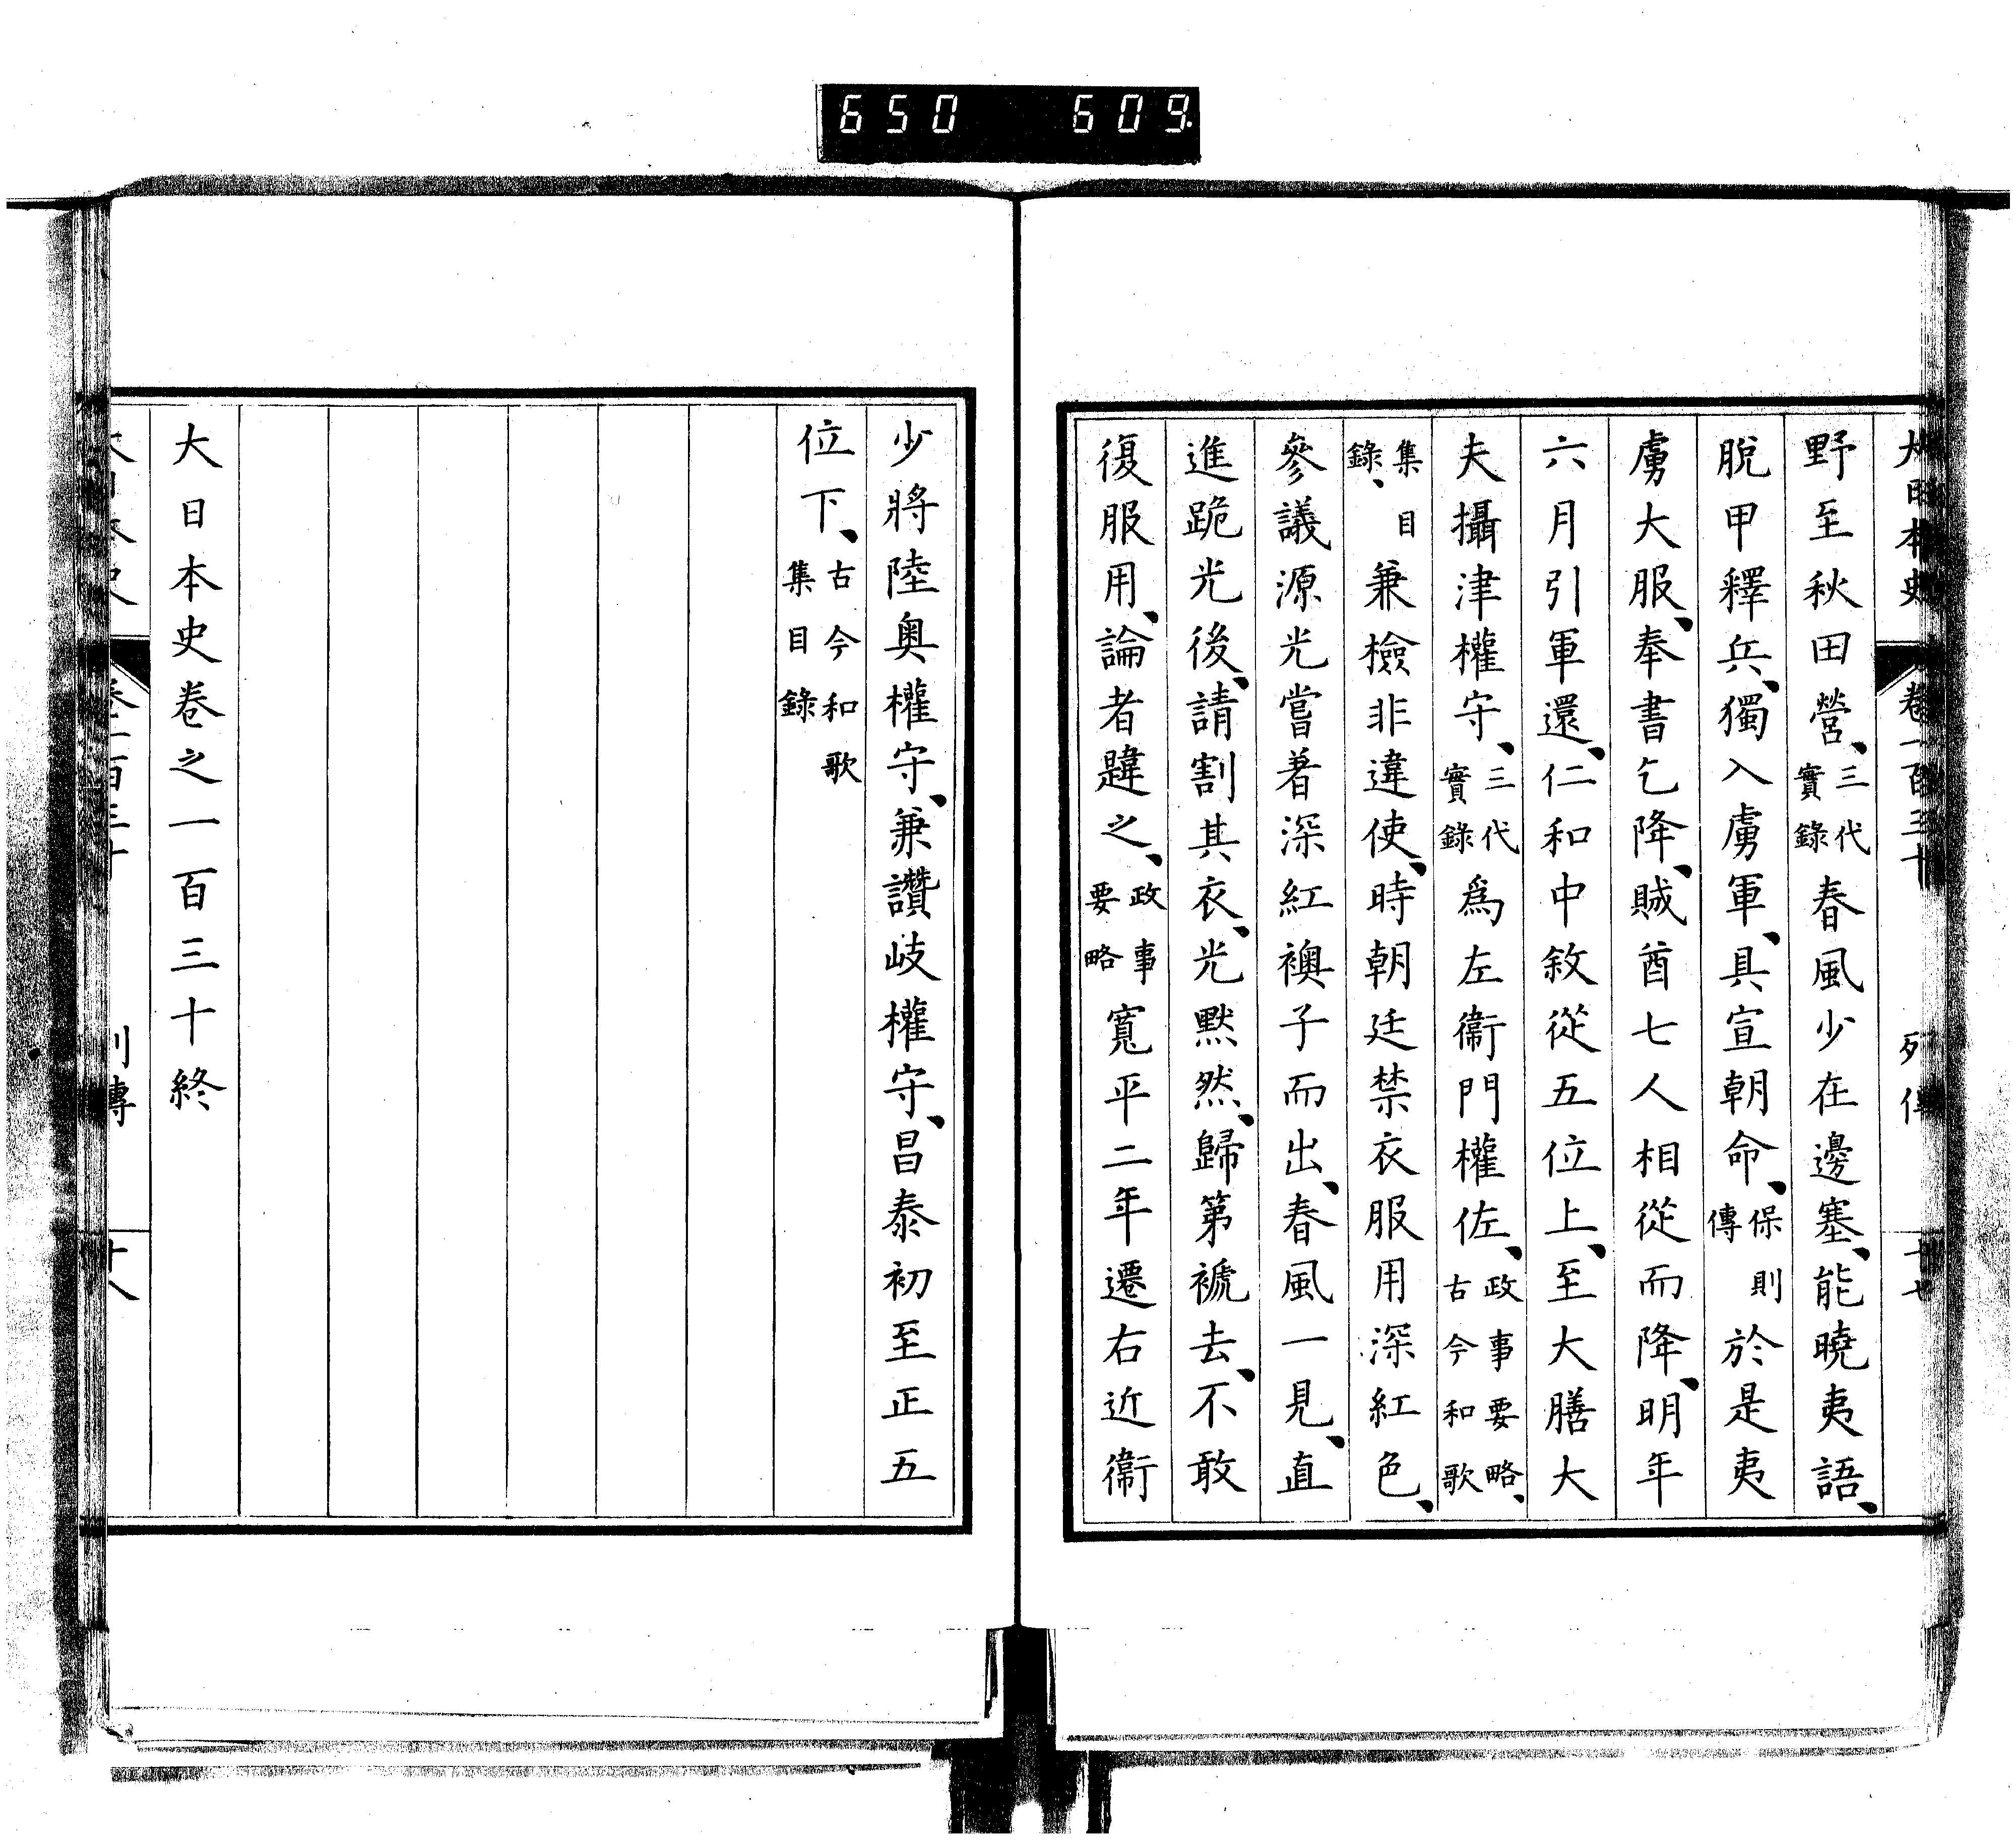 650 609
大日本史 卷一百三十 列傳 十七
野至秋田營、三代實錄春風少在邊塞、能曉夷語、
脫甲釋兵、獨入虜軍、具宣朝命、保則傳於是夷
虜大服、奉書乞降、賊酋七人相從而降、明年
六月引軍還、仁和中敘從五位上、至大膳大
夫攝津權守、三代實錄爲左衞門權佐、政事要略、古今和歌
集目錄、兼檢非違使、時朝廷禁衣服用深紅色、
參議源光嘗着深紅襖子而出、春風一見、直
進跪光後、請割其衣、光默然、歸第褫去、不敢
復服用、論者韙之、政事要略寬平二年遷右近衞
少將陸奧權守、兼讚岐權守、昌泰初至正五
位下、古今和歌集目錄
大日本史卷之一百三十終
大日本史 卷一百三十 列傳 十八